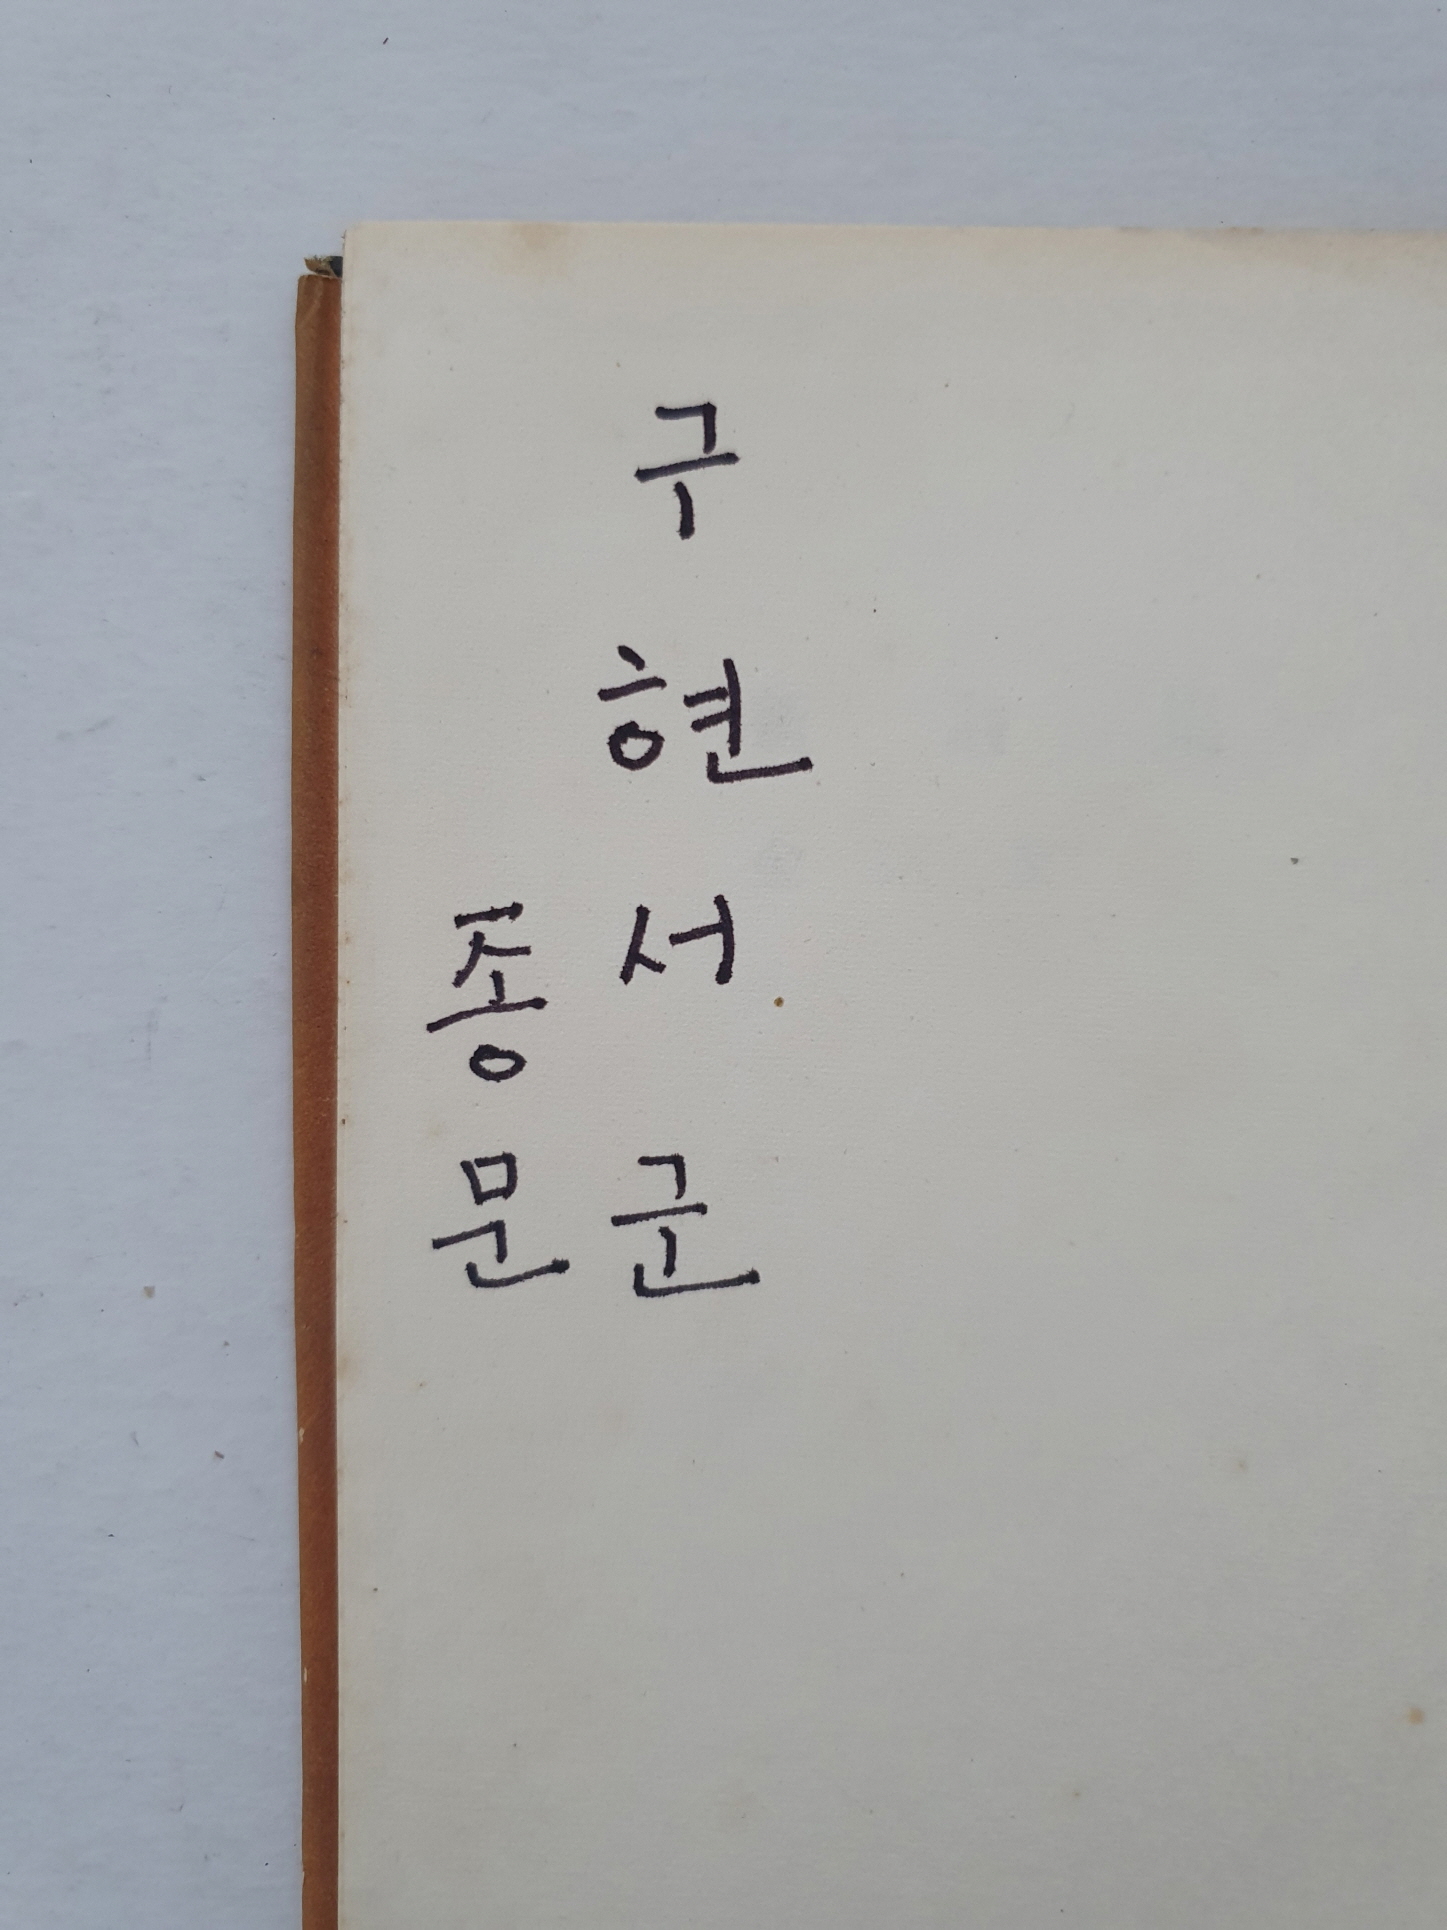 구현서군
종문